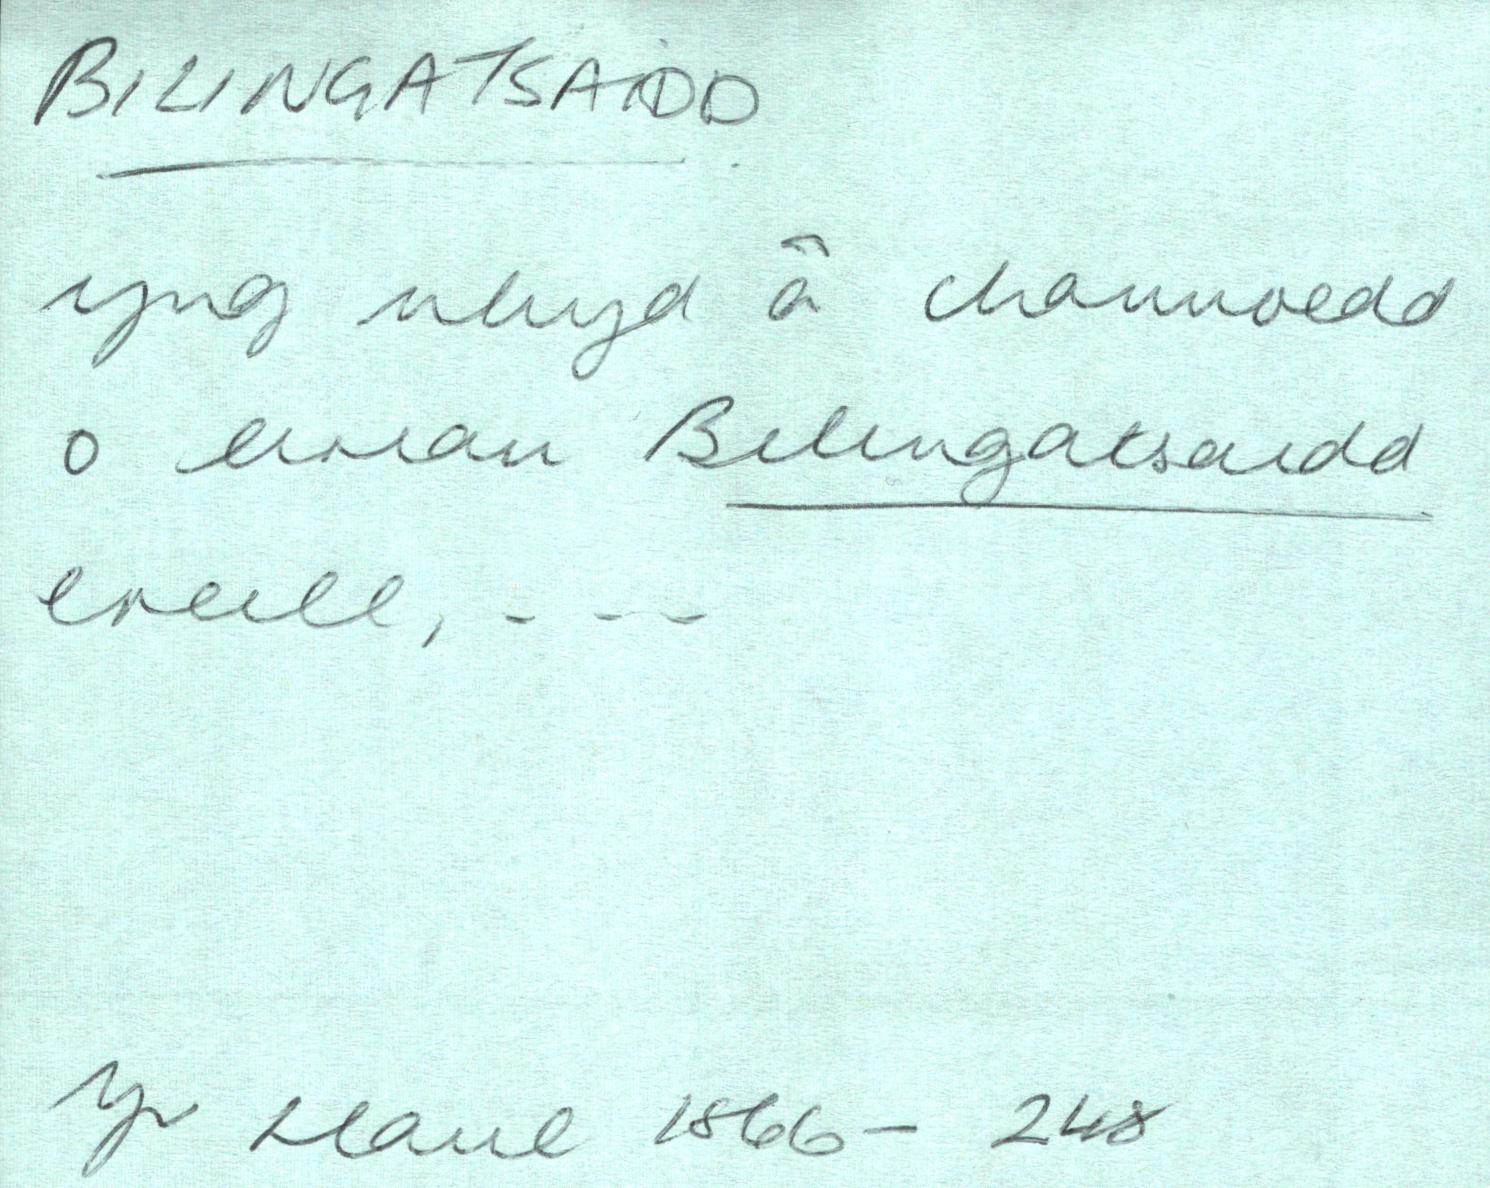 BILINGATSAIDD
yng nhyd â channoedd
o eiriau Bilingatsaidd
ereill, - - -
Yr Haul 1866 - 248